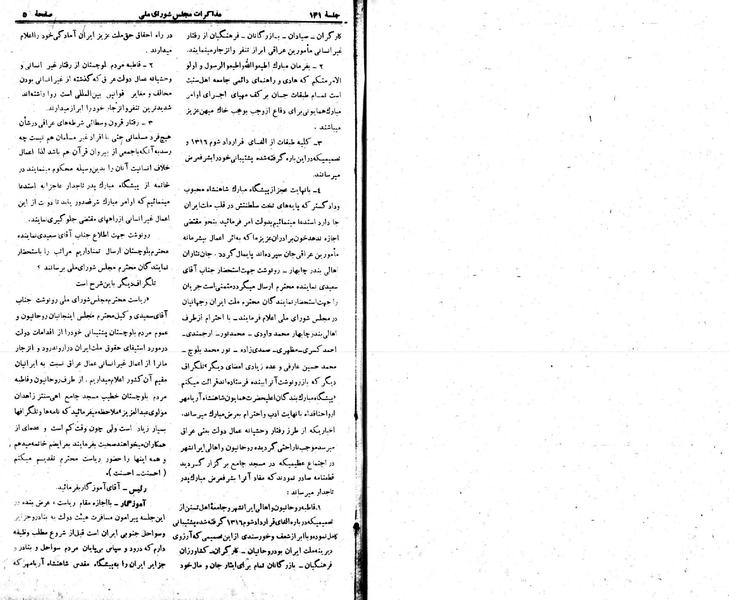 جلسهٔ ۱۴۱
مذاکرات مجلس شورای ملی
صفحهٔ ۵
کارگران ـ صیادان ـ بازرگانان ـ فرهنگیان از رفتار
غیر انسانی مأمورین عراقی ابراز تنفر و انزجار مینمایند.
۲ ـ بفرمان مبارک اطیعوالله و اطیعوالرسول و اولو
الامر منکم که هادی و راهنمای دائمی جامعه اهل سنت
است تمام طبقات جان بر کف مهیای اجرای اوامر
مبارک همایونی برای دفاع از وجب بوجب خاک میهن عزیز
میباشند.
۳ـ کلیه طبقات از الغای قرارداد شوم ۱۳۱۶ و
تصمیمیکه در این باره گرفته شده پشتیبانی خود را بشرفعرض
میرسانند.
۴ـ با نهایت عجز از پیشگاه مبارک شاهنشاه محبوب
و دادگستر که پایه‌های تخت سلطنتش در قلب ملت ایران
جا دارد استدعا مینمائیم بدولت امر فرمائید بنحو مقتضی
اجازه ندهد خون برادران عزیز ما که بر اثر اعمال بیشرمانه
مأمورین عراقی جان سپرده‌اند پایمال گردد. جان نثاران
اهالی بندر چابهار ـ رونوشت جهت استحضار جناب آقای
سعیدی نماینده محترم ارسال میگردد متمنی است جریان
را جهت استحضار نمایندگان محترم ملت ایران و جهانیان
در مجلس شورای ملی اعلام فرمایند ـ با احترام از طرف
اهالی بندر چابهار محمد داودی ـ محمدنور ـ ارجمندی ـ
احمد کسری ـ مظهری ـ صمدی زاده ـ نور محمد بلوچ ـ
محمد حسین عارفی و عده زیادی امضای دیگر «تلگراف
دیگر که باز رونوشت آنرا بنده فرستاده‌اند قرائت میکنم
«پیشگاه مبارک بندگان اعلیحضرت همایون شاهنشاه آریامهر
ارواحنا فداه با نهایت ادب و احترام بعرض مبارک میرساند،
اخباریکه از طرز رفتار وحشیانه عمال دولت بعثی عراق
میرسد موجب ناراحتی گردیده روحانیون و اهالی ایرانشهر
در اجتماع عظیمیکه در مسجد جامع برگزار گردید
قطعنامه صادر نمودند که مفاد آنرا بشرفعرض مبارک پدر
تاجدار میرساند:
۱.قاطبه روحانیون و اهالی ایرانشهر و جامعهٔ اهل تسنن از
تصمیمیکه در باره الغای قرارداد شوم ۱۳۱۶ گرفته شده پشتیبانی
کامل نموده و با ابراز شعف و خورسندی از این تصمیمی که آرزوی
دیرینه ملت ایران بود روحانیون ـ کارگران ـ کشاورزان
فرهنگیان ـ بازرگانان تمام برای ایثار جان و مال خود
در راه احقاق حق ملت عزیز ایران آمادگی خود را اعلام
میدارند.
۲ ـ قاطبه مردم بلوچستان از رفتار غیر انسانی و
وحشیانه عمال دولت عراق که گذشته از غیر انسانی بودن
مخالف و مغایر قوانین بین‌المللی است روا داشته‌اند
شدیدترین تنفر و انزجار خود را ابراز میدارند.
۳ ـ رفتار قرون وسطائی شرطه‌های عراقی در شأن
هیچ فرد مسلمانی حتی با افراد غیر مسلمان هم نیست چه
رسد به آنکه با جمعی از پیروان قرآن هم باشد لذا اعمال
خلاف انسانیت آنان را بدین وسیله محکوم مینمایند در
خاتمه از پیشگاه مبارک پدر تاجدار عاجزانه استدعا
مینمائیم که اوامر مبارک شرفصدور یابد تا دولت از این
اعمال غیر انسانی از راههای مقتضی جلوگیری نمایند.
رونوشت جهت اطلاع جناب آقای سعیدی نماینده
محترم بلوچستان ارسال تمنا داریم مراتب را باستحضار
نمایندگان محترم مجلس شورای ملی برسانند»
تلگراف دیگر باین شرح است
«ریاست محترم مجلس شورای ملی رونوشت جناب
آقای سعیدی وکیل محترم مجلس اینجانبان روحانیون و
عموم مردم بلوچستان پشتیبانی خود را از اقدامات دولت
در مورد استیفای حقوق ملت ایران در اروندرود و انزجار
ما را از اعمال غیر انسانی عمال عراق نسبت به ایرانیان
مقیم آن کشور اعلام میداریم. از طرف روحانیون و قاطبه
مردم بلوچستان خطیب مسجد جامع اهل سنن زاهدان
مولوی عبدالعزیز» ملاحظه میفرمائید که نامه‌ها و تلگرافها
بسیار زیاد است ولی چون وقت کم است و عده‌ای از
همکاران میخواهند صحبت بفرمایند بعرایضم خاتمه میدهم
و همه اینها را حضور ریاست محترم تقدیم میکنم
(احسنت ـ احسنت).
رئیس ـ آقای آموزگار بفرمائید.
آموزگار ـ با اجازه مقام ریاست، عرض بنده در
این جلسه پیرامون مسافرت هیئت دولت به بنادر و جزایر
و سواحل جنوبی ایران است قبل از شروع مطلب وظیفه
دارم که درود و سپاس بی‌پایان مردم سواحل و بنادر و
جزایر ایران را به پیشگاه مقدس شاهنشاه آریامهر که